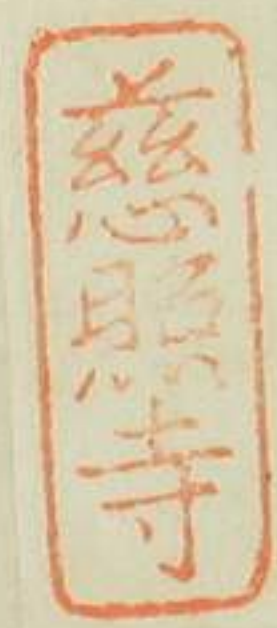 慈照寺